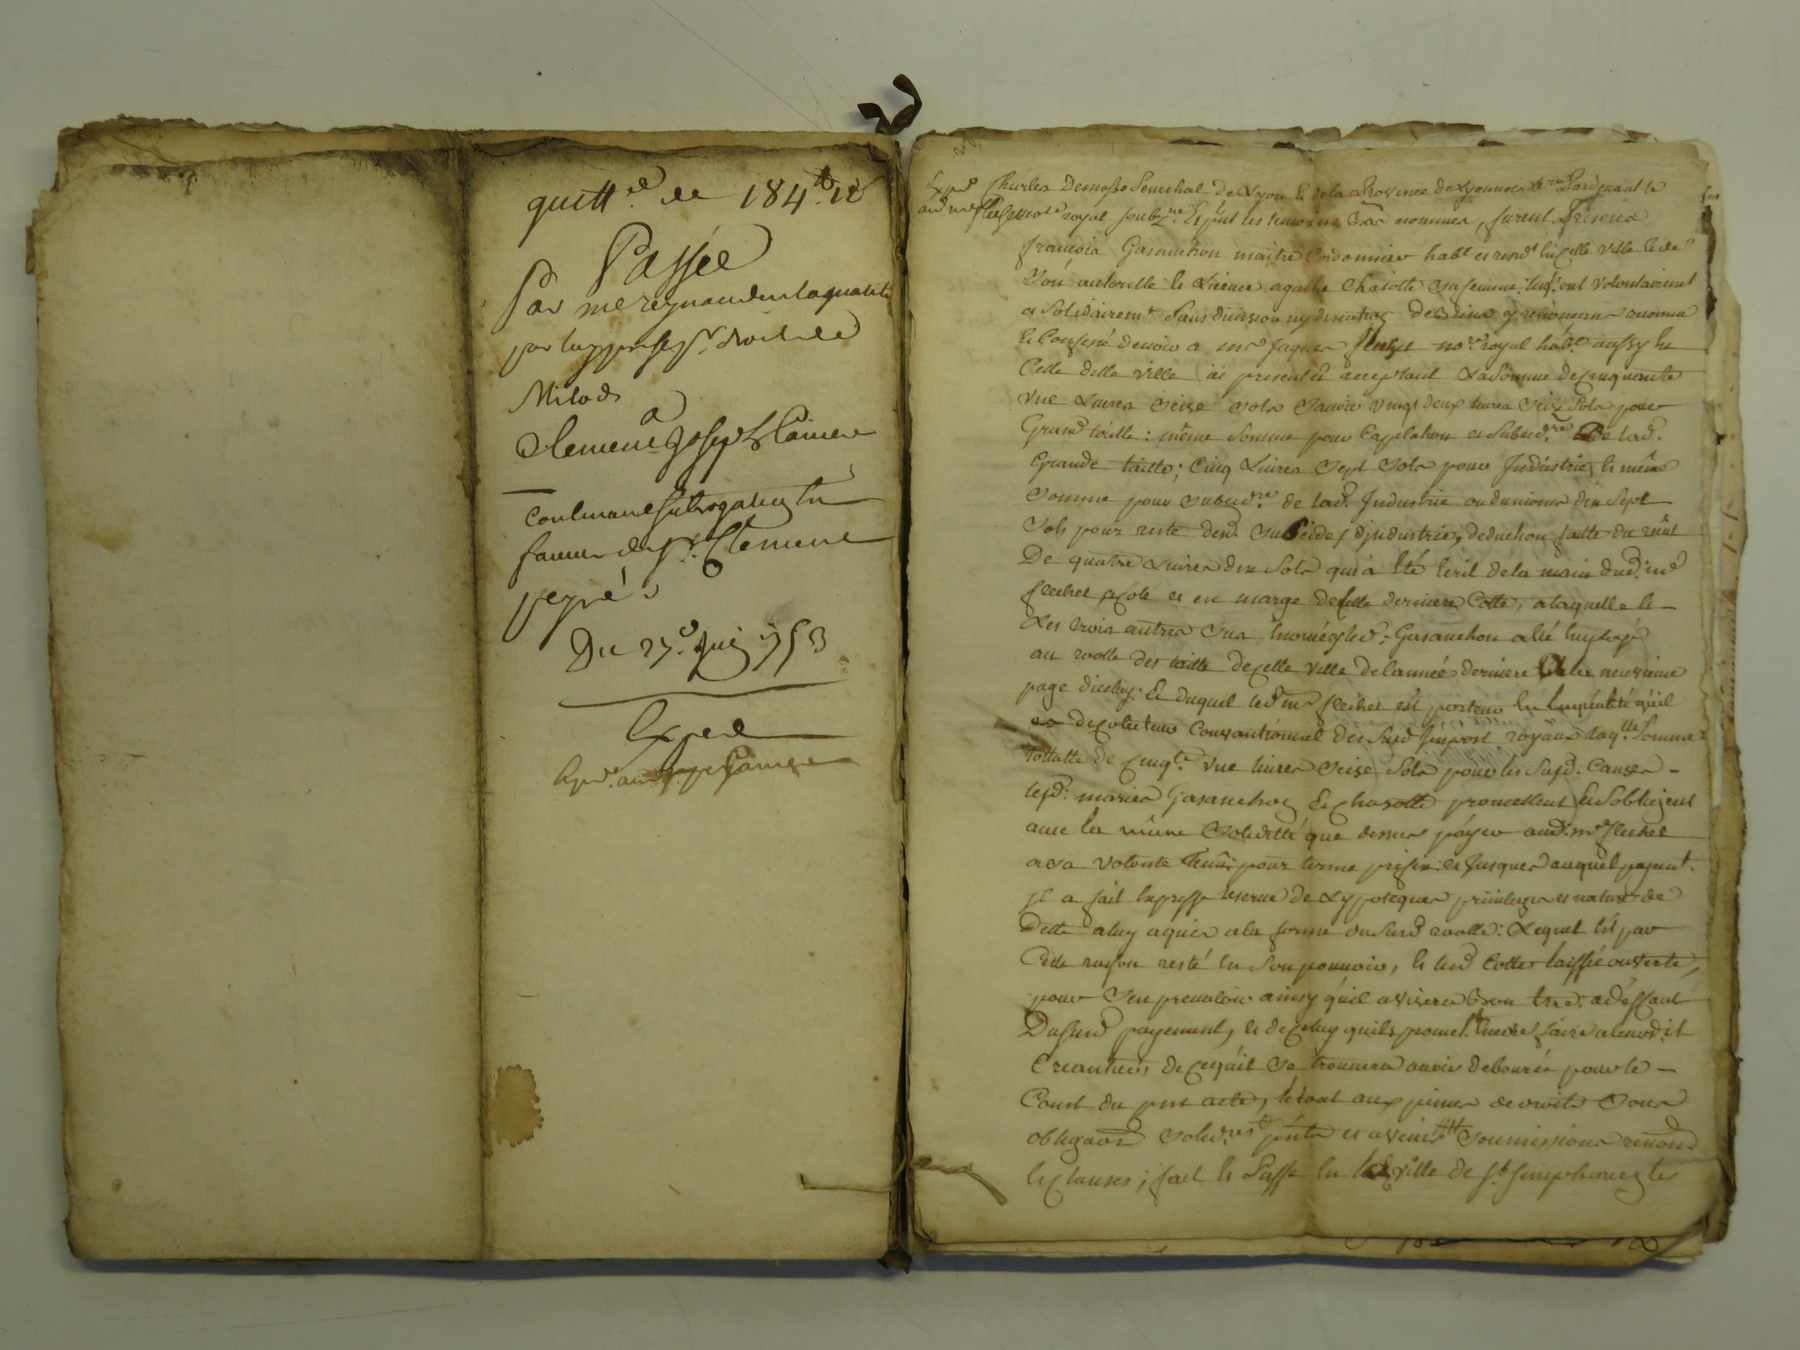 quitt.ce de 184.tt 12s
Passée
Par me reynaud en la quallité
Milods
a
Clement Joseph
Contenant subrogation en
faveur de Sr. Clement
peyre
Du 27.e Juin 1753
Expedié
Charles Demasso Senechal de Lyon & de la Province de Lyonnois Pardevant le
no.re royal soub.ne Et pnt les temoins bas nommés, furent Présens
françois Gasanchon maitre Cordonnier hab.t et resid.t en Cette Ville & de
Son autoritté & Licence agathe Chasotte sa femme. lesq.ls ont Volontairement
& Solidairem.t Sans division ny discution De Biens y renonceant
& Confessé devoir a me Jaques flechet no.re royal hab.t aussy en
Cette ditte Ville icy present & acceptant La Somme de Cinquante
une Livres Seize Sols Savoir Vingt deux Livres Seize Sols pour
Grand taille; même Somme pour Capitation et Subcid.re de lad.
Grande taille; Cinq Livres Sept Sols pour Jndustrie, & même
Somme pour Subcid.re de lad. Jndustrie ou du moins dix Sept
Sols pour reste desd. Subcide & d'jndustrie, deduction faitte du
De quatre Livres dix Sols qui a Eté Ecrit de la main dud. me
flechet a côté et en marge de Cette derniere Cotte, a laquelle &
Les trois autres Sus Enoncés led.t Gasanchon a été Employé
au rolle des taille de Cette Ville de l'année derniere a la neuvieme
page d'iceluy. Et duquel led. me flechet est porteur En la qualité qu'il
de Colecteur Conventionnel des Susd. Jmpost royaux laq.lle Somme
tottalle de Cinq.te une livres Seize Sols pour les Susd. Causes
lesd. mariés Gasanchon & Chasotte promettent & S'obligent
avec la même Solidité que dessus payer aud. me flechet
a Sa Volonté pour terme prefix; et Jusques auquel payement.
Jl a fait Expresse reserve de L'ypoteque privileges et nature de
Dette a luy aquis a la forme du Susd. rolle; Lequel Est par
Cette raison resté En Son pouvoir, & lesd. Cottes laissée ouverte,
pour S'en prevaloir ainsy qu'il avisera bon Etre. a deffaut
Du Susd. payement, & de Celuy qu'ils promet.t Encore faire a leurdit
Creancier, de Ce qu'il Se trouvera avoir deboursé pour le
Coust du pnt acte, Le tout aux peines de droit Sous
obligaon Solid.re et avenir Soumissions renonc.
& clauses; fait & Passé En lad. Ville de St. Simphorien le